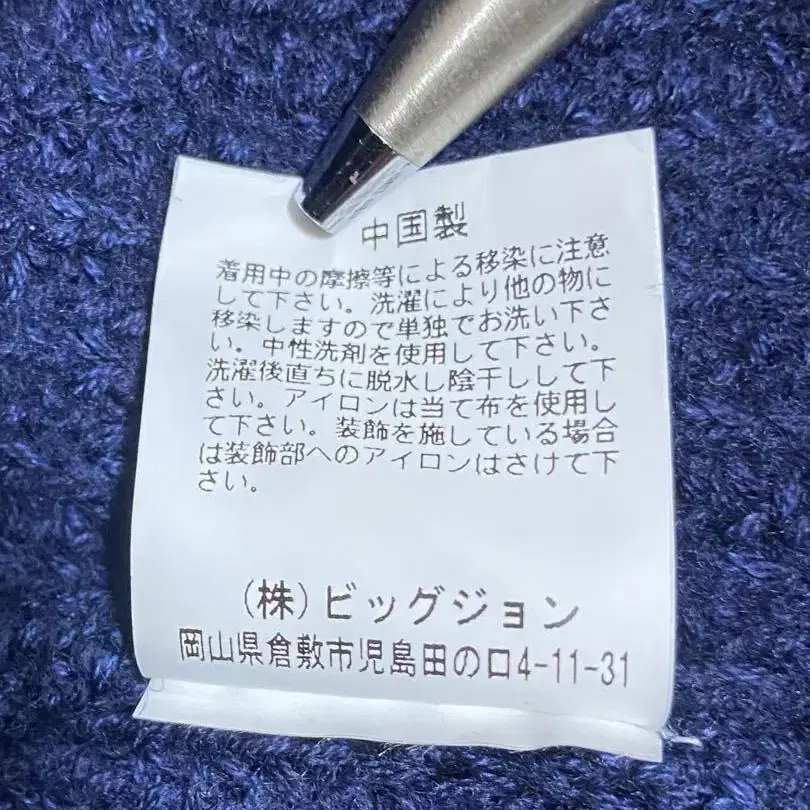 中国製
着用中の摩擦等による移染に注意
して下さい。洗濯により他の物に
移染しますので単独でお洗い下さ
い。中性洗剤を使用して下さい。
洗濯後直ちに脱水し陰干しして下
さい。アイロンは当て布を使用し
て下さい。装飾を施している場合
は装飾部へのアイロンはさけて下
さい。
(株)ビッグジョン
岡山県倉敷市児島田の口4-11-31